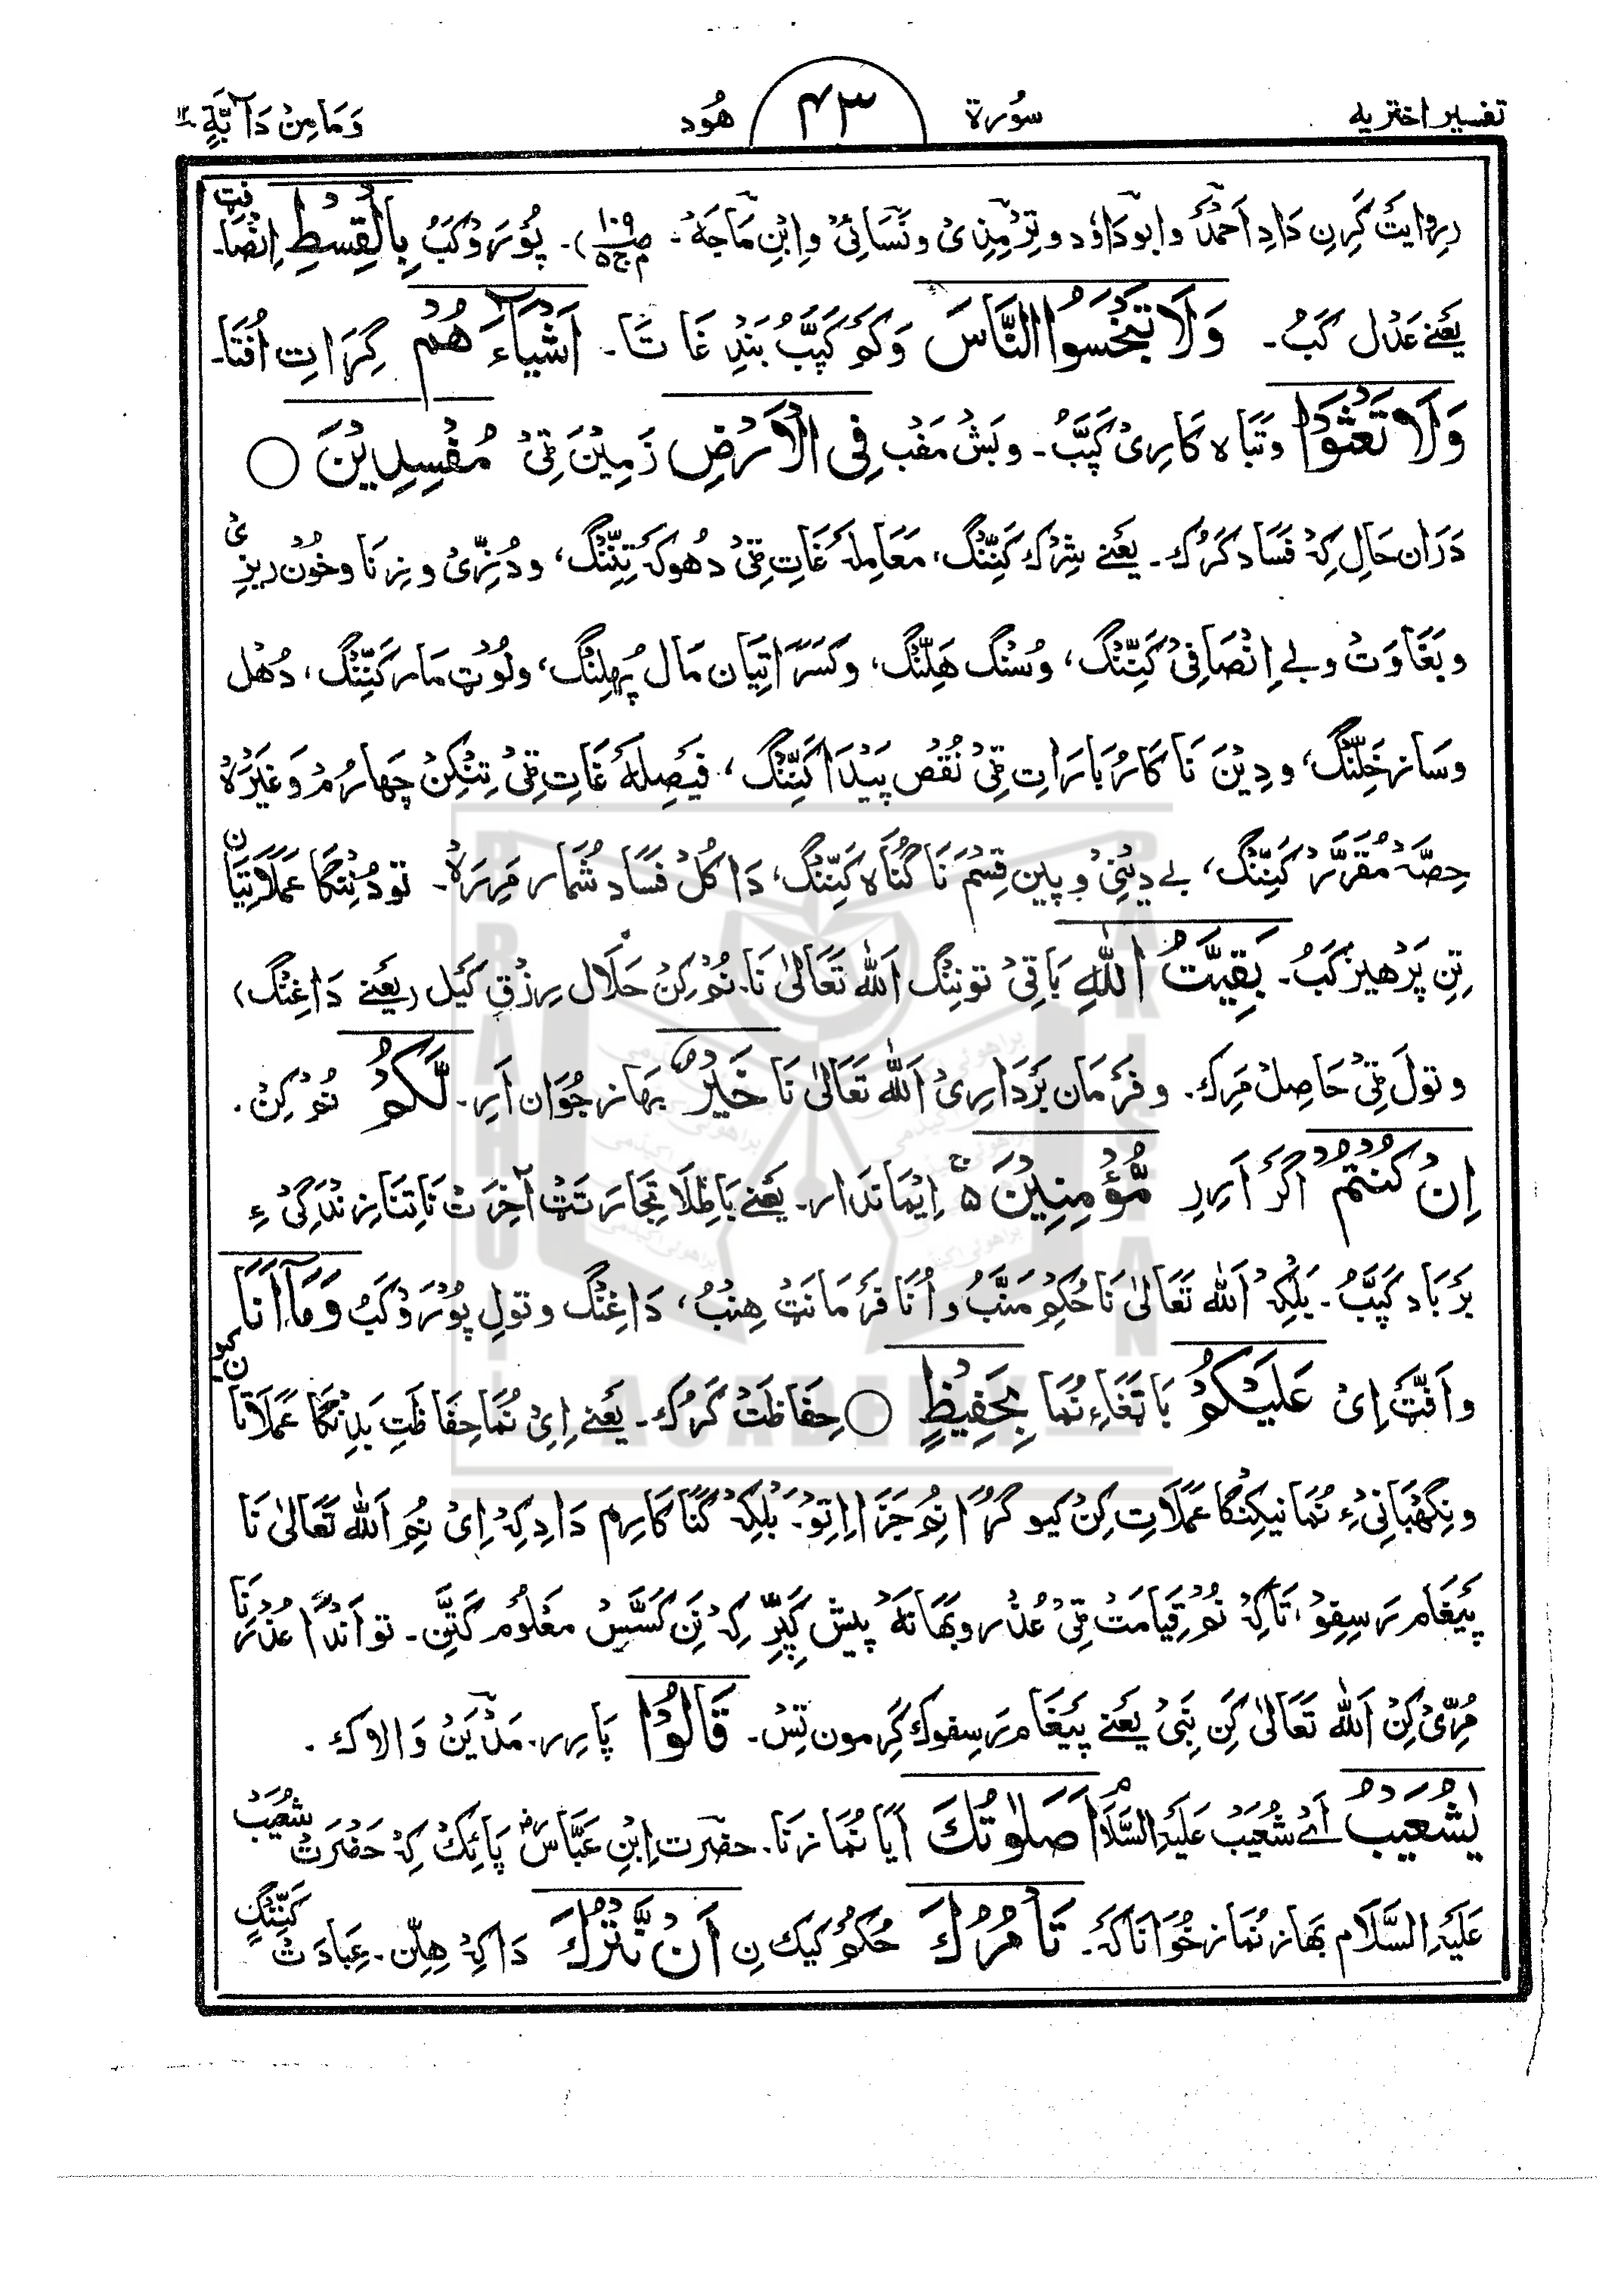 تفسیر اختریه سُورة ۴۳ هُود وَمَا مِنْ دَآبَّةٍ ۱۲
رِوایَتْ کَرِنِ دَادِ اَحمَدْ وابوداوٗد وتِرْمِذِیْ ونَسَائِیْ واِبْنِ مَاجَهْ۔ م ص۱۰۹ ج۵)۔ پُوْرَوْ کَبُ بِالْقِسْطِ اِنْصَافَتْ۔
یَعْنے عَدْل کَبُ۔ وَلَا تَبْخَسُوا النَّاسَ وَکَمْ کَپَّبُ بَنْدِ غَا تَا۔ اَشْیَآءَهُمْ گِرَاتِ اُفْتَا۔
وَلَا تَعْثَوْا وتَبَاه کَارِیْ کَپَّبُ۔ وبَشْ مَفْب فِی الْاَرْضِ زَمِیْنَ ٹِیْ مُفْسِدِیْنَ ○
دَرَان حَالِ کِهْ فَسَاد کَرُک۔ یَعْنے شِرْک کَنِّنْگ، مَعَامِلَهْ غَاتِ ٹِیْ دُهوکَهْ تِنِّنْگ، ودُزِّیْ وزِنَا وخُوْن ریزِیْ
وبَغَاوَتْ وبے اِنْصَافِیْ کَنِّنْگ، وسُنْگ هَلِّنْگ، وکَسَرَاتِیَان مَال پُهلِنْگ، ولُوْٹ مَار کَنِّنْگ، دُهْل
وسَاز خَلِّنْگ، ودِیْنَ نَا کَارُبَارَاتِ ٹِیْ نُقْص پَیْدَا کَنِّنْگ، فَیْصِلَهْ غَاتِ ٹِیْ تِنْکِنْ چَهارُمْ وَغَیْرَهْ
حِصَّهْ مُقَرَّرْ کَنِّنْگ، بے دِیْنِیْ وپین قِسْمَ نَا گُنَاه کَنِّنْگ، دَا کُلْ فَسَاد شُمَار مَرِرَهْ۔ تو دُنِنْگا عَمَلَاتِیَان
تِنِ پَرْهیز کَبُ۔ بَقِیَّتُ اللّٰهِ بَاقِیْ توننْگ اَللّٰه تَعَالیٰ نَا۔ نُمْ کِنْ حَلَال رِزْقِ کَیْل (یَعْنے دَاغِنْگ)
وتولَ ٹِیْ حَاصِلْ مَرِک۔ وفَرْمَان بَرْدَارِیْ اَللّٰه تَعَالیٰ نَا خَیْرٌ بهَاز جُوَان اَرِ۔ لَّکُمْ نُمْ کِنْ۔
اِنْ کُنْتُمْ اَگَرْ اَرِرِ مُّؤْمِنِیْنَ ۵ اِیْمَانْدَار۔ یَعْنے بَاطِلَا تِجَارَتَتْ آخِرَتْ نَا تِنَا زِنْدَگِیْ ءِ
بَرْبَاد کَپَّبُ۔ بَلْکِهْ اَللّٰه تَعَالیٰ نَا حُکمْ مَنَّبُ واُنَا فَرْمَانَتْ هِنْبُ، دَاغِنْگ وتولِ پُوْرَوْ کَبُ وَمَآ اَنَا
واَفَّٹْ اِیْ عَلَیْکُمْ بَاتِغَاءِ نُمَا بِحَفِیْظٍ ○ حِفَاظَتْ کَرُک۔ یَعْنے اِیْ نُمَا حِفَاظَتِ بَدِنْگَا عَمَلَاتَا کیون
ونِگَهْبَانِیْ ءِ نُمَا نیکِنْگا عَمَلَاتِ کِنْ کیو گُرَا نُمْ جَزَا اِتِوْ۔ بَلْکِهْ کَنَا کَارِم دَادِ کِهْ اِیْ نُمِ اَللّٰه تَعَالیٰ نَا
پَیْغَام رَسِفِوْ، تَاکِهْ نُمْ قِیَامَتْ ٹِیْ عُذْر وبَهَانَهْ پیش کَپِرِّ کِهْ نَنِ کَسَّسْ مَعْلُوم کَتَّنْ۔ تو اَنْدَا عُذْرَ نَا
مُرِّیْ کِنْ اَللّٰه تَعَالیٰ کَنِ نَبِیْ یَعْنے پَیْغَام رَسِفوک کَرِ مون تِسْ۔ قَالُوْا پَارِر۔ مَدْیَنْ وَالاک۔
یٰشُعَیْبُ اَےْ شُعَیْب عَلَیْهِ السَّلَام اَصَلٰوتُکَ آیَا نُمَاز نَا۔ حضرت اِبْنِ عَبَّاسْ پَائِکْ کِهْ حَضْرَتْ شُعَیْبْ
عَلَیْهِ السَّلَام بهَاز نُمَاز خُوَانَاکَهْ۔ تَاْمُرُکَ حُکمْ کیک نِ اَنْ نَّتْرُکَ دَاکِهْ هِلِّن۔ عِبَادَتْ کَنِّنْگِ